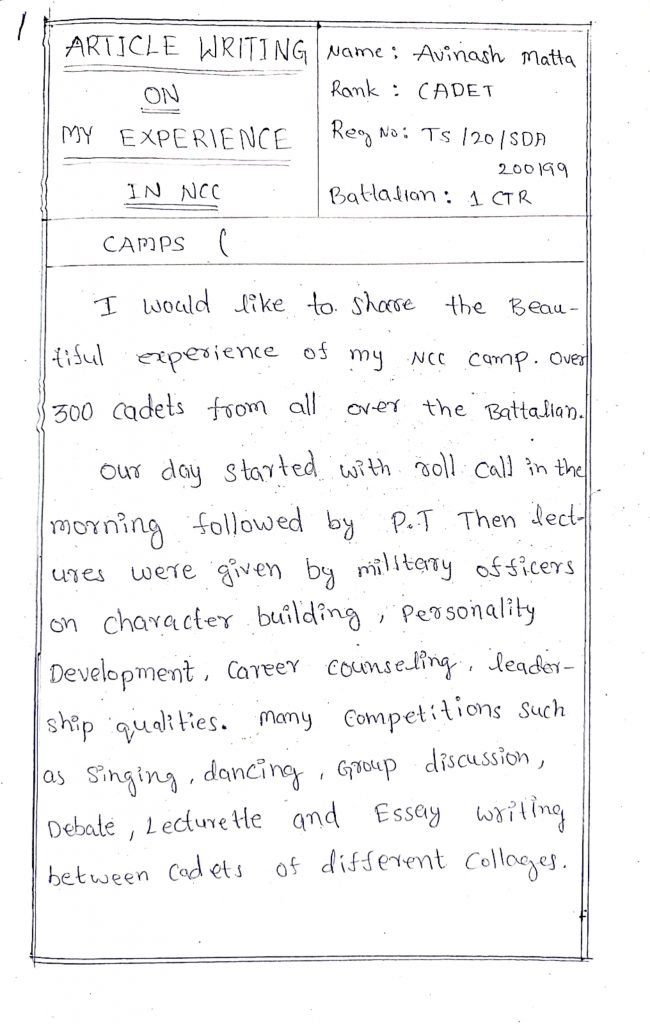 1
ARTICLE WRITING
ON
MY EXPERIENCE
IN NCC
CAMPS (
Name : Avinash Matta
Rank : CADET
Reg No: TS /20/SDA
200199
Battalian : 1 CTR
I would like to share the Beau-
tiful experience of my NCC camp. Over
300 cadets from all over the Battalian.
Our day started with roll call in the
morning followed by P.T Then lect-
ures were given by military officers
on character building, Personality
Development, Career counseling, leader-
ship qualities. Many Competitions such
as Singing, dancing, Group discussion,
Debate, Lecturette and Essay writing
between Cadets of different Collages.